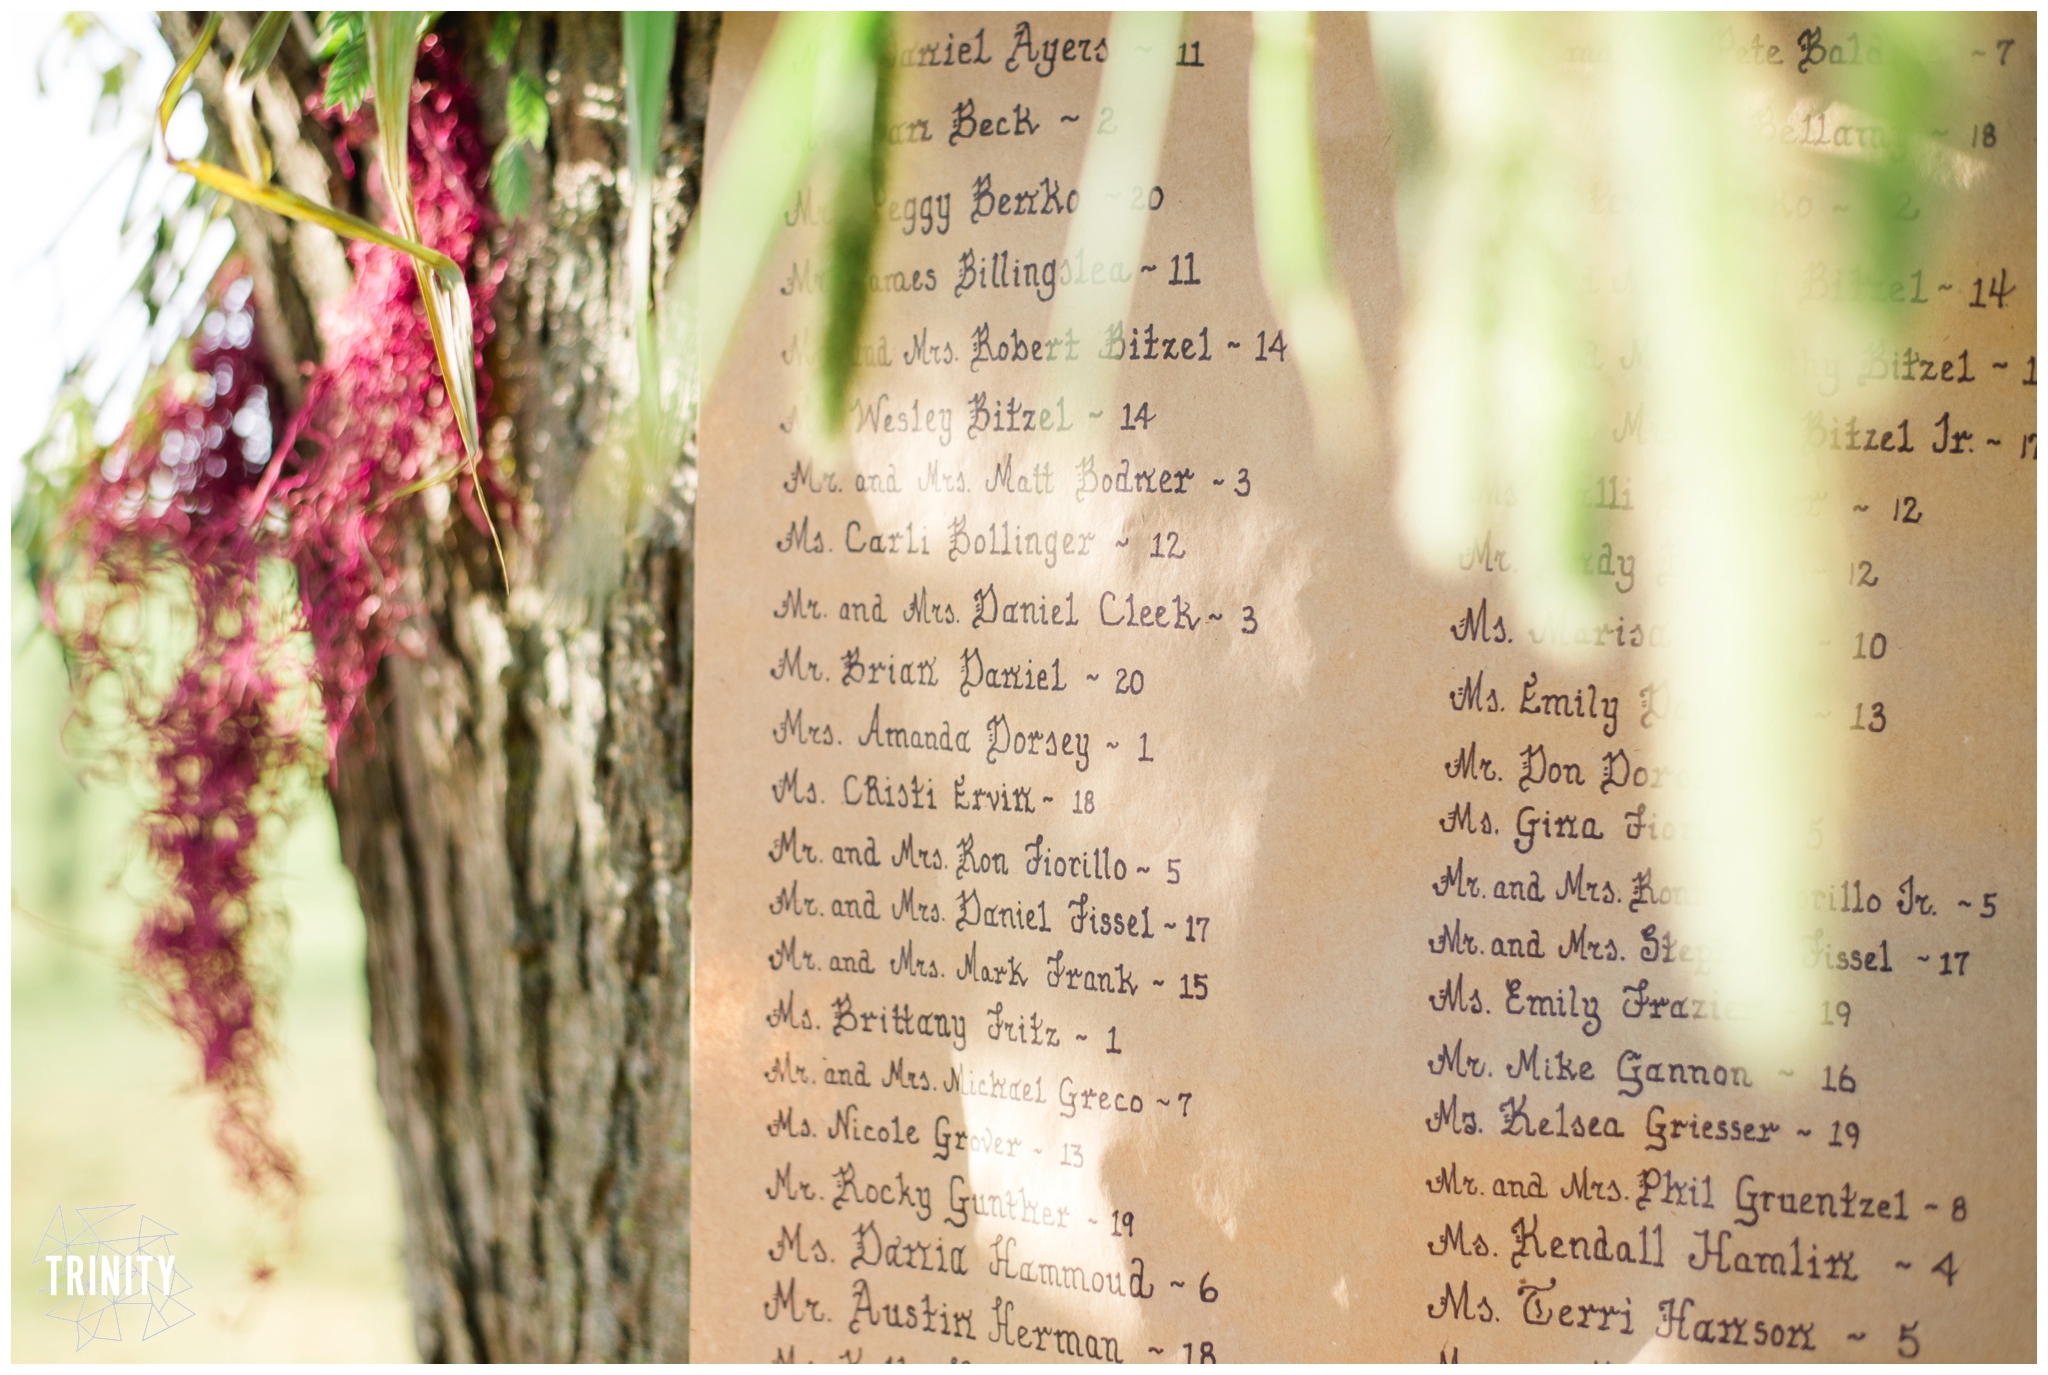 Daniel Ayers ~ 11
Beck ~ 2
Peggy Benko ~ 20
Mr. James Billingslea ~ 11
and Mrs. Robert Bitzel ~ 14
Wesley Bitzel ~ 14
Mr. and Mrs. Matt Bodner ~ 3
Ms. Carli Bollinger ~ 12
Mr. and Mrs. Daniel Cleek ~ 3
Mr. Brian Daniel ~ 20
Mrs. Amanda Dorsey ~ 1
Ms. CRisti Ervin ~ 18
Mr. and Mrs. Ron Fiorillo ~ 5
Mr. and Mrs. Daniel Fissel ~ 17
Mr. and Mrs. Mark Frank ~ 15
Ms. Brittany Fritz ~ 1
Mr. and Mrs. Michael Greco ~ 7
Ms. Nicole Grover ~ 13
Mr. Rocky Gunther ~ 19
Ms. Dania Hammoud ~ 6
Mr. Austin Herman ~ 18
Pete ~ 7
~ 18
~ 2
Bitzel ~ 14
Bitzel ~
Bitzel Jr. ~ 17
~ 12
Mr. 12
Ms. Marisa ~ 10
Ms. Emily ~ 13
Mr. Don
Ms. Gina 5
Mr. and Mrs. Jr. ~ 5
Mr. and Mrs. Fissel ~ 17
Ms. Emily 19
Mr. Mike Gannon ~ 16
Ms. Kelsea Griesser ~ 19
Mr. and Mrs. Phil Gruentzel ~ 8
Ms. Kendall Hamlin ~ 4
Ms. Terri Hanson ~ 5
TRINITY